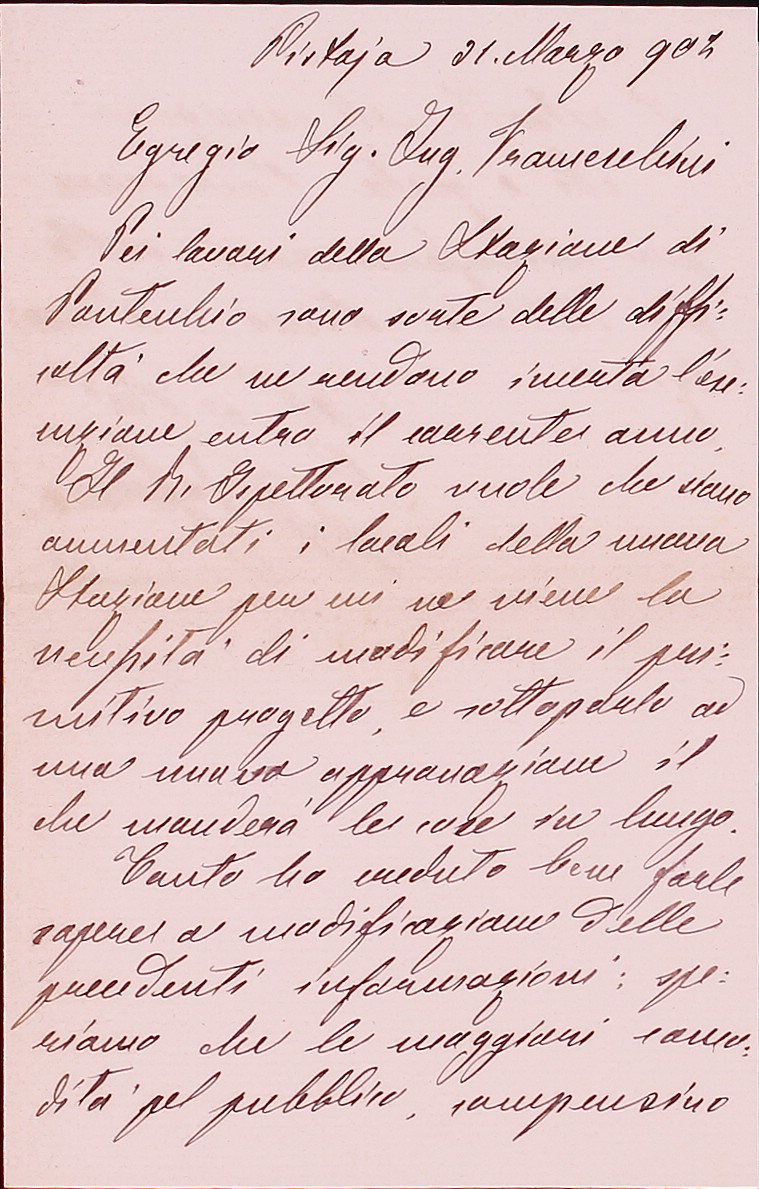 Pistoja 31. Marzo 902
Egregio Sig. Ing. Franceschini
Pei lavori della Stazione di
Pontecchio sono sorte delle diffi=
coltà che ne rendono incerta l'ese=
cuzione entro il corrente anno.
Il R. Ispettorato vuole che siano
aumentati i locali della nuova
Stazione per cui ne viene la
necessità di modificare il pri=
mitivo progetto, e sottoporlo ad
una nuova approvazione il
che manderà le cose in lungo.
Tanto ho creduto bene farle
sapere a modificazione delle
precedenti informazioni; spe=
riamo che le maggiori como=
dità pel pubblico, compensino